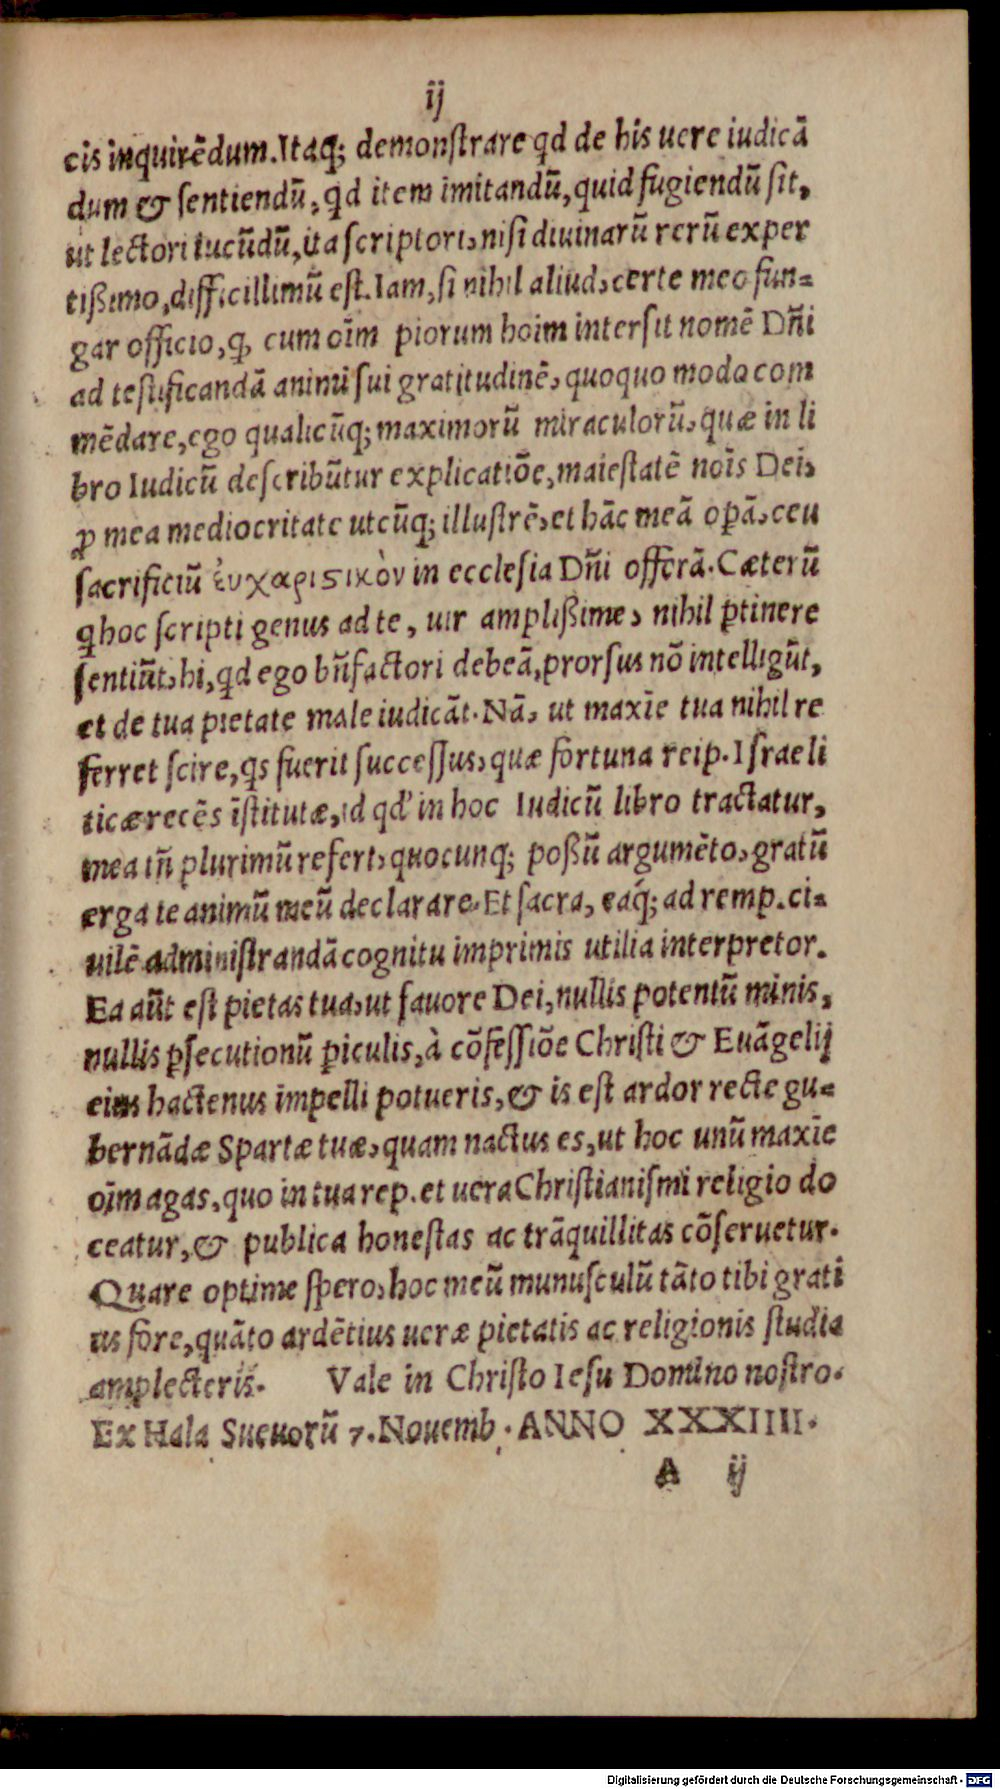 ij
cis inquirēdum. Itaq; demonstrare qd de his uere iudicā
dum & sentiendū, qd item imitandū, quid fugiendū sit,
ut lectori iucūdū, ita scriptori, nisi diuinarū rerū exper
tißimo, difficillimū est. Iam, si nihil aliud, certe meo fun=
gar officio, q, cum oīm piorum hoim intersit nomē Dñi
ad testificandā animi sui gratitudinē, quoquo modo com
mēdare, ego qualicūq; maximorū miraculorū, quæ in li
bro Iudicū describūtur explicatiōe, maiestatē nois Dei,
ꝓ mea mediocritate utcūq; illustrē, et hāc meā opā, ceu
sacrificiū ἐυχαριςικὸν in ecclesia Dñi offerā. Cæterū
q hoc scripti genus ad te, uir amplißime, nihil ptinere
sentiūt, hi, qd ego bñfactori debeā, prorsus nō intelligūt,
et de tua pietate male iudicāt. Nā, ut maxīe tua nihil re
ferret scire, qs fuerit successus, quæ fortuna reip. Israeli
ticæ recēs īstitutæ, id qd' in hoc Iudicū libro tractatur,
mea tñ plurimū refert, quocunq; poßū argumēto, gratū
erga te animū meū declarare. Et sacra, eáq; ad remp. ci=
uilē administrandā cognitu imprimis utilia interpretor.
Ea aūt est pietas tua, ut fauore Dei, nullis potentū minis,
nullis psecutionū piculis, à cōfessiōe Christi & Euāgelij
eius hactenus impelli potueris, & is est ardor recte gu=
bernādæ Spartæ tuæ, quam nactus es, ut hoc unū maxīe
oīm agas, quo in tua rep. et uera Christianismi religio do
ceatur, & publica honestas ac trāquillitas cōseruetur.
Quare optime spero, hoc meū munusculū tāto tibi grati
us fore, quāto ardētius ueræ pietatis ac religionis studia
amplecteris. Vale in Christo Iesu Domino nostro.
Ex Hala Sueuorū 7. Nouemb. ANNO XXXIIII.
A ij
Digitalisierung gefördert durch die Deutsche Forschungsgemeinschaft - DFG